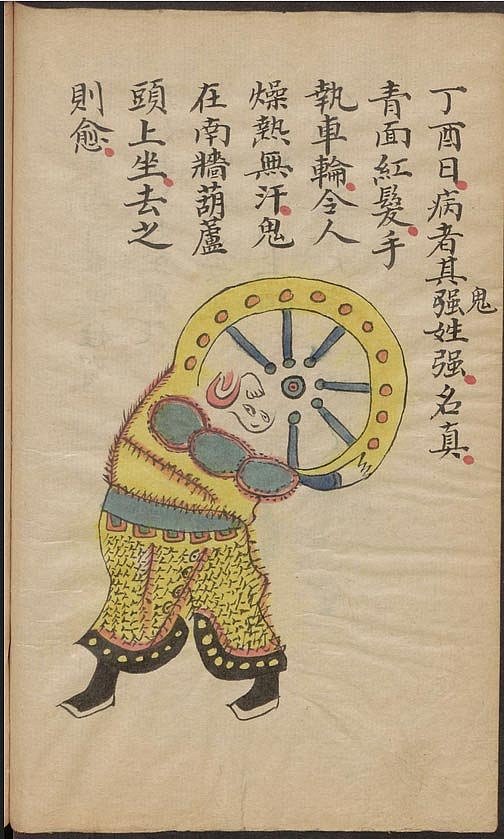 丁酉日病者其鬼强姓强名真
青面紅髮手
執車輪令人
燥熱無汗鬼
在南牆葫蘆
頭上坐去之
則愈